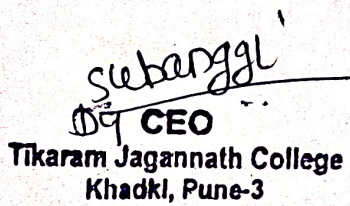 Dy CEO
Tikaram Jagannath College
Khadki, Pune-3